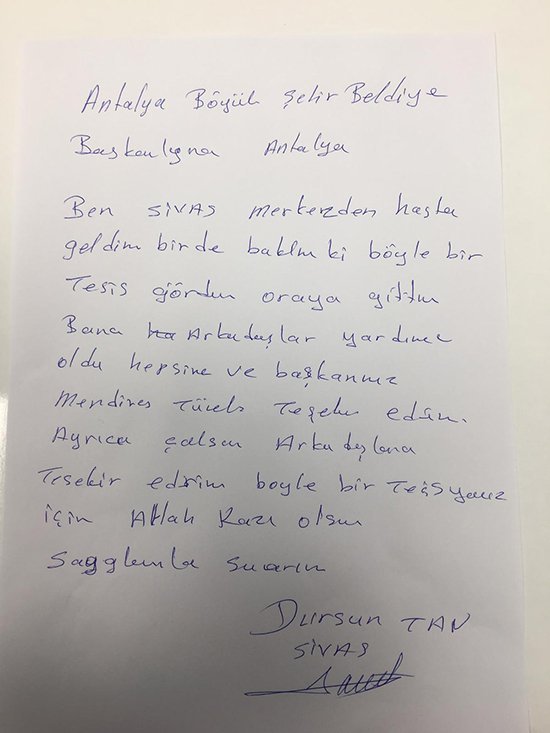 Antalya Böyük Şehir Beldiye
Başkanlığına Antalya
Ben SİVAS merkezden hasta
geldim birde baktım ki böyle bir
Tesis gördüm oraya gittim
Bana Arkadaşlar yardımcı
oldu hepsine ve başkanımız
Menderes Türel
Ayrıca çalşan Arkadaşlara
Teşekir ederim boyle bir
için Allah Razı olsun
sunarım
Dursun TAN
SİVAS